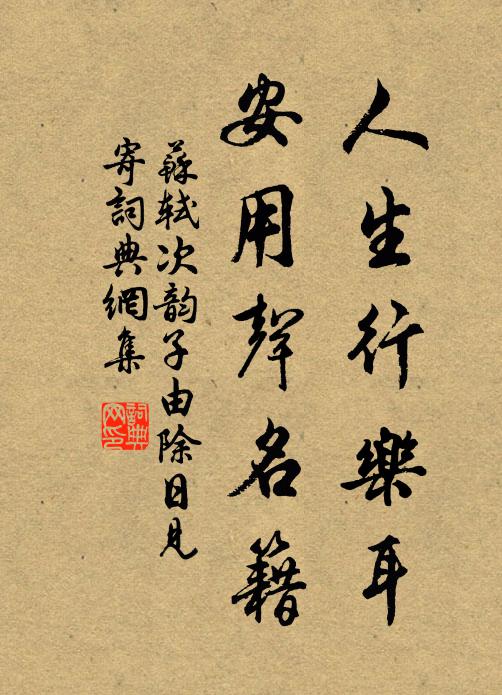 人生行樂耳
安用聲名籍
蘇軾次韵子由除日見
寄詞典網集
詞典網印